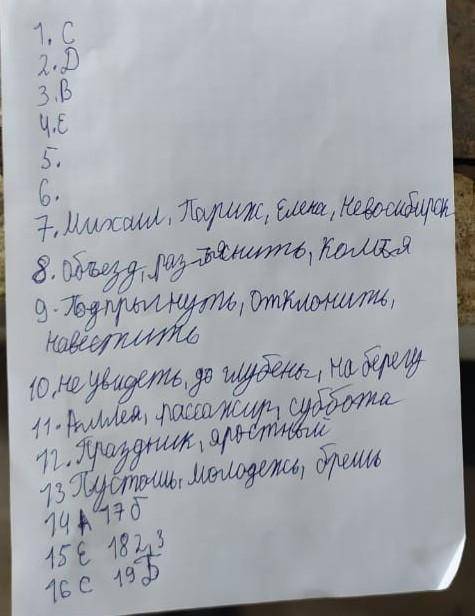 1. С
2. D
3. В
4. Е
5.
6.
7. Михаил, Париж, Елена, Невосибирск
8. Объезд, разъянить, колья
9. Подпрыгнуть, отклонить,
навестить
10. не увидеть, до глубены, на берегу
11. Аллея, рассажир, суббота
12. Праздник, яростный
13 Пустошь, молодежь, брешь
14 А 17 б
15 Е 18 2,3
16 С 19 Б